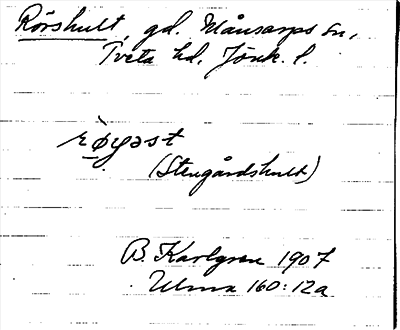 Rörshult, gd. Månsarps sn,
Tveta hd, Jönk. l.
(Stengårdshult)
B. Karlgren 1907
Ulma 160:12a